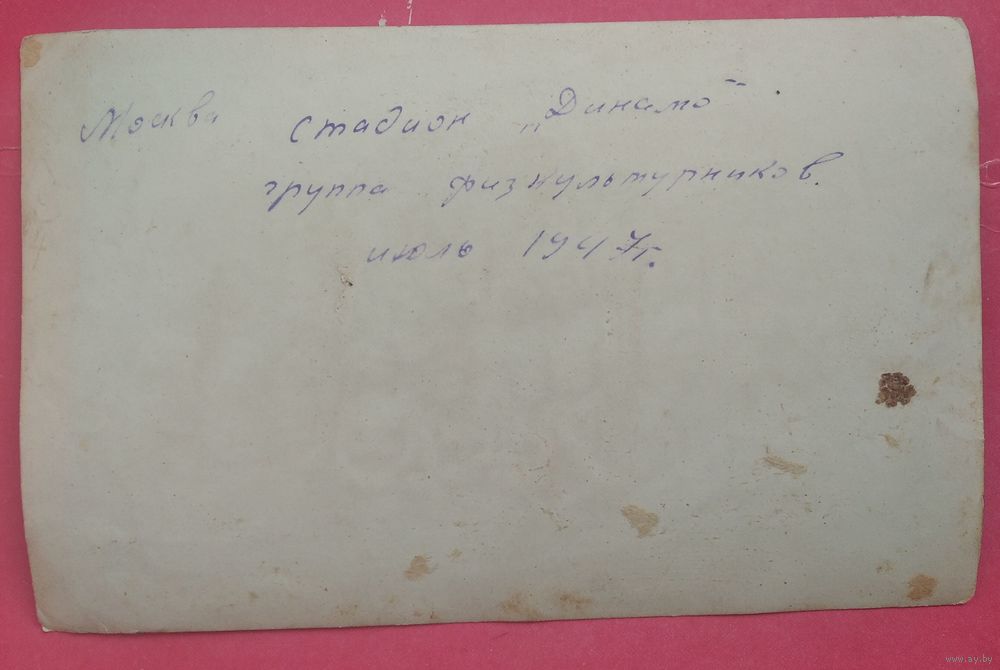 Москва стадион „Динамо".
группа физкультурников.
июль 1947г.
www.ay.by